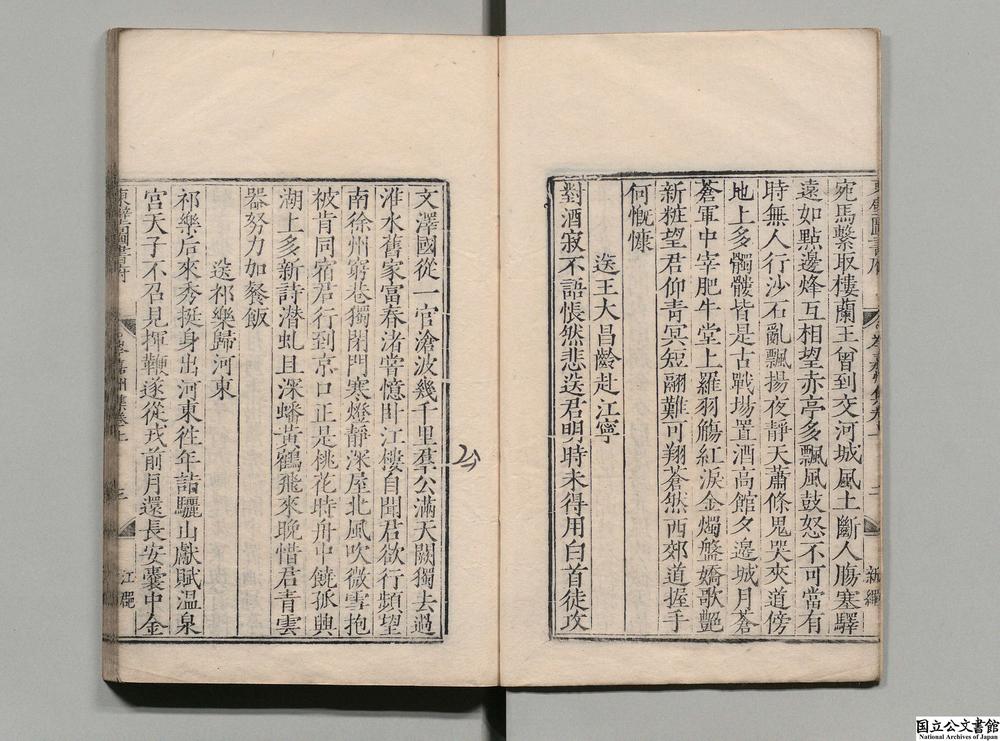 宛馬繫取樓蘭王曾到交河城風土斷人膓塞驛
遠如點邊烽互相望赤亭多飄風鼓怒不可當有
時無人行沙石亂飄揚夜靜天蕭條鬼哭夾道傍
地上多髑髏皆是古戰場置酒高館夕邊城月蒼
蒼軍中宰肥牛堂上羅羽觴紅淚金燭盤嬌歌艷
新粧望君仰青冥短翮難可翔蒼然西郊道握手
何慨慷
送王大昌齡赴江寧
對酒寂不語悵然悲送君明時未得用白首徒攻
文澤國從一官滄波幾千里羣公滿天闕獨去過
淮水舊家富春渚嘗憶臥江樓自聞君欲行頻望
南徐州窮巷獨閉門寒燈靜深屋北風吹微雪抱
被肯同宿君行到京口正是桃花時舟中饒孤興
湖上多新詩潛虬且深蟠黃鶴飛來晚惜君青雲
器努力加餐飯
送祁樂歸河東
祁樂后來秀挺身出河東徃年詣驪山獻賦溫泉
宮天子不召見揮鞭遂從戎前月還長安囊中金
東壁圖書府
三
国立公文書館
National Archives of Japan